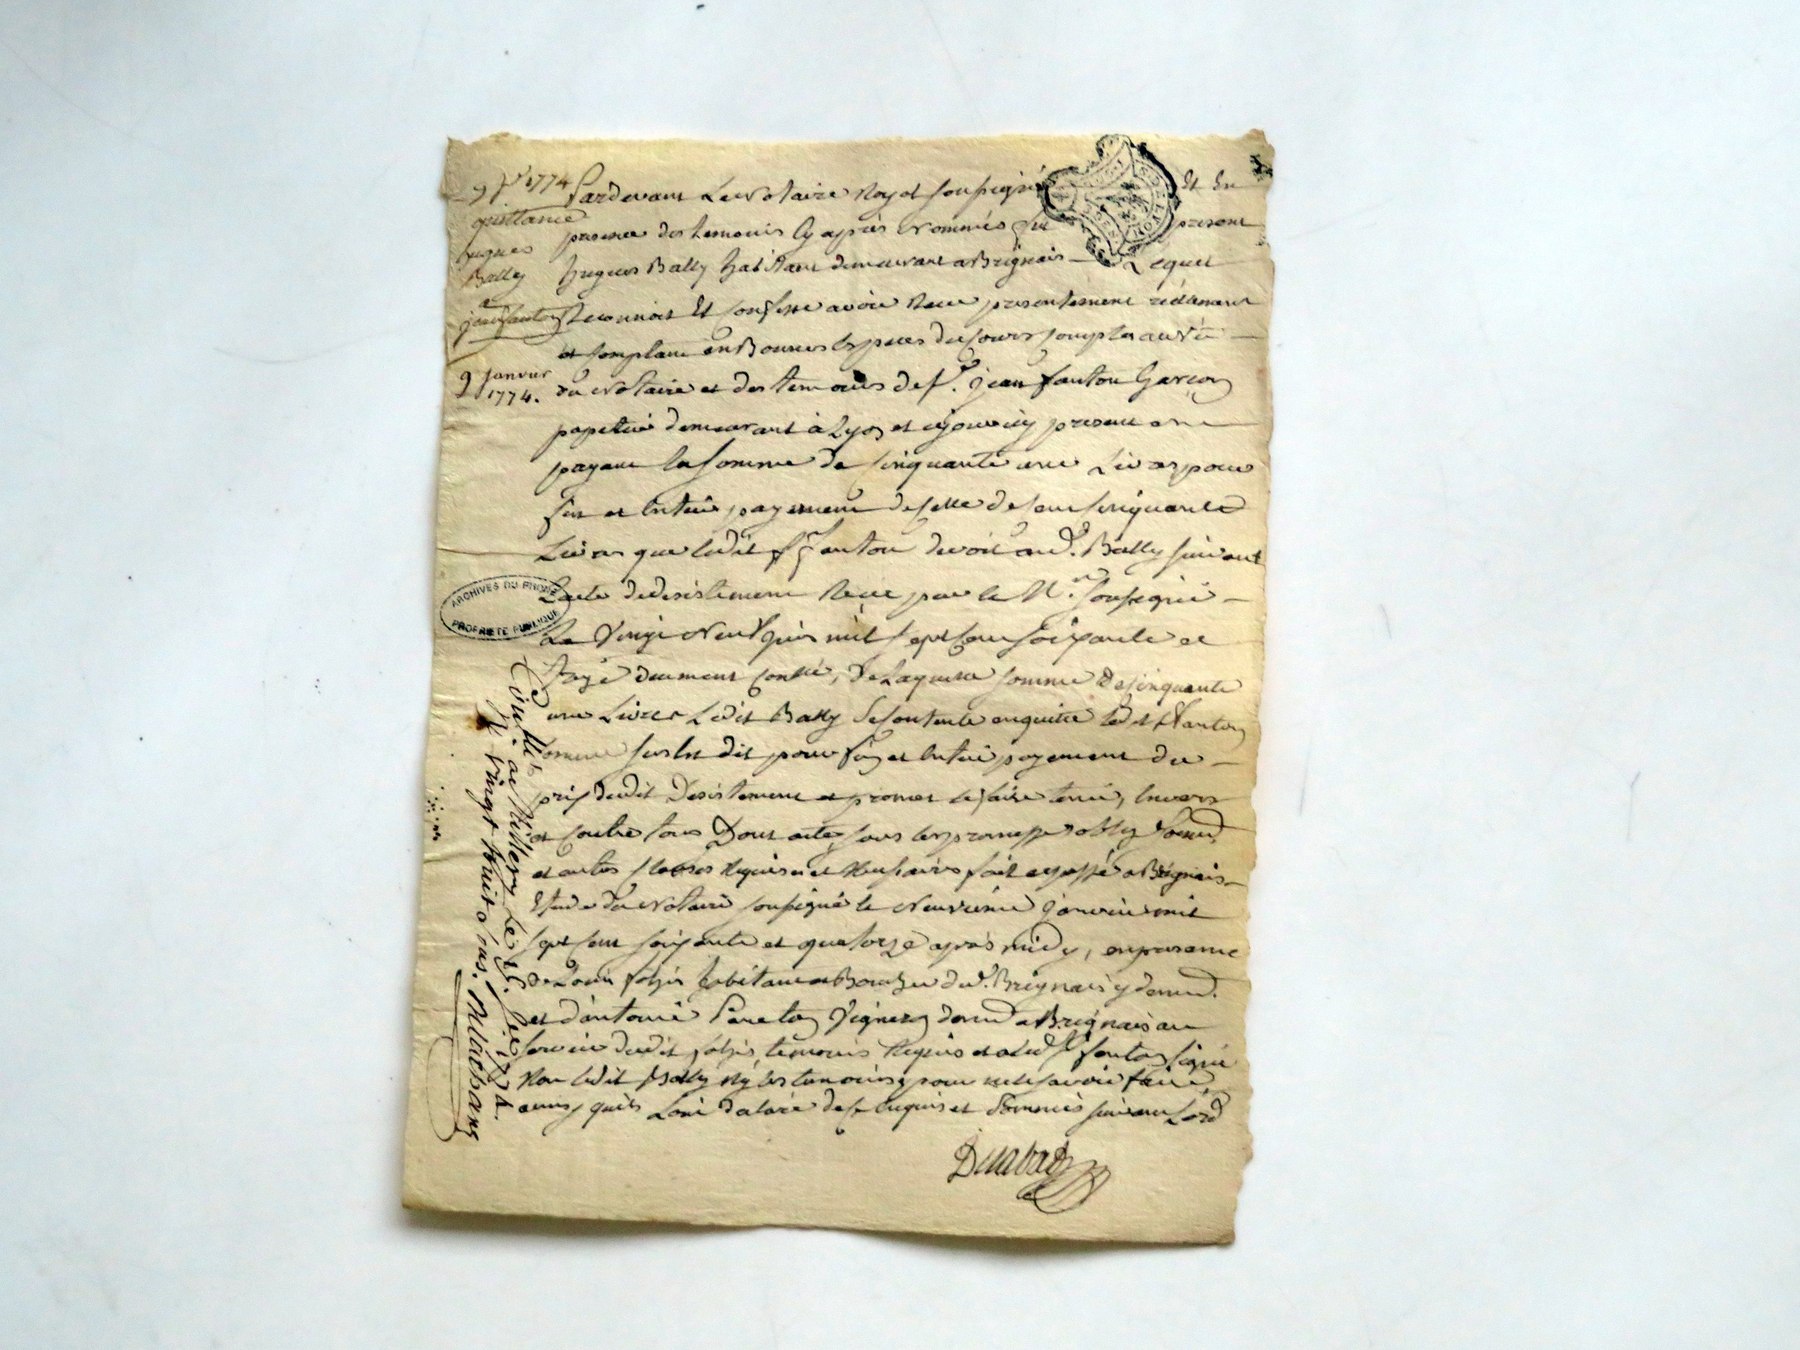 9 Jer 1774
quittance
hugues
Bally
a
jean fanton
9 Janvier
1774.
Pardevant Le notaire Royal soussigné Et En
presence des temoins cy après nommés fut present
hugues Bally habitant demeurant a Brignais — Lequel
Reconnoit Et Confesse avoir Receu presentement réellement
et comptant en Bonnes Especes du Cours comptés au vû —
du notaire et des temoins de sr. jean fanton Garçon
papetier demeurant à Lyon et icy present
payant la somme de cinquante une Livres pour
fin et Entier payement de celle de cent cinquante
Livres que ledit sr fanton devoit aud. Bally suivant
Lacte de desistement Receu par le Nre. soussigné —
Le Vingt neuf juin mil sept cent soixante et
treize duement Conllé, De Laquelle somme De cinquante
une Livres Ledit Bally se Contente en quitte led. sr fanton
Comme sus Est dit pour fin et Entier payement du —
prix dudit Desistement et promet le faire tenir, Envers
et Contre tous Dont acte, sous les promesses oblig
et autres Clauses Requises et Necessaires fait et passé a Brignais —
Etude du notaire soussigné le neuvieme janvier mil
sept cent soixante et quatorze après midy, en presence
de Louis habitant et Boucher dud. Brignais y demt.
et d'antoine Vigneron demt a Brignais au
service dudit temoins Requis et a led sr fanton signé
Non ledit Bally Ny les temoins pour ne le scavoir faire
ainsy qu'ils L'ont déclaré de ce Enquis et sommés suivant Lord
Conllé a Millery Le 1774.
Rt vingt huit sols.
ARCHIVES DU RHÔNE
PROPRIÉTÉ PUBLIQUE